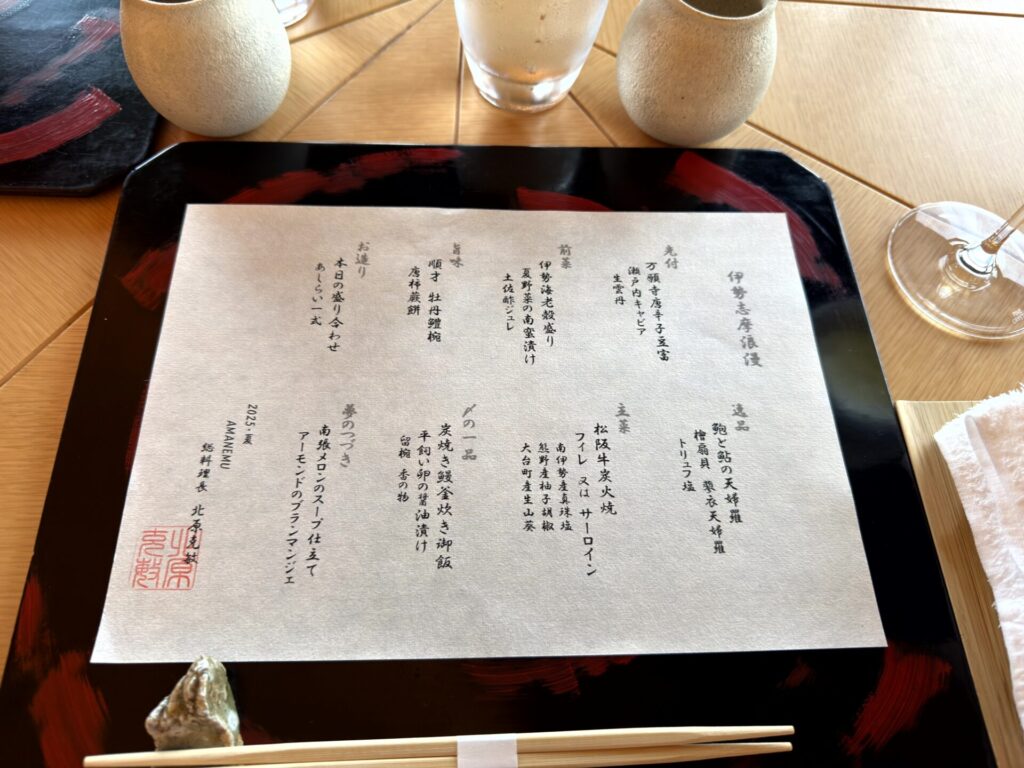 伊勢志摩浪漫
先付
万願寺唐辛子豆富
瀬戸内キャビア
生雲丹
前菜
伊勢海老殻盛り
夏野菜の南蛮漬け
土佐酢ジュレ
旨味
順才 牡丹鱧椀
唐柿蕨餅
お造り
本日の盛り合わせ
あしらい一式
逸品
鮑と鮎の天婦羅
檜扇貝 蓼衣天婦羅
トリュフ塩
主菜
松阪牛炭火焼
フィレ 又は サーロイン
南伊勢産真珠塩
熊野産柚子胡椒
大台町産生山葵
〆の一品
炭焼き鰻釜炊き御飯
平飼い卵の醤油漬け
留椀 香の物
夢のつづき
南張メロンのスープ仕立て
アーモンドのブランマンジェ
2025・夏
AMANEMU
総料理長 北原克敏